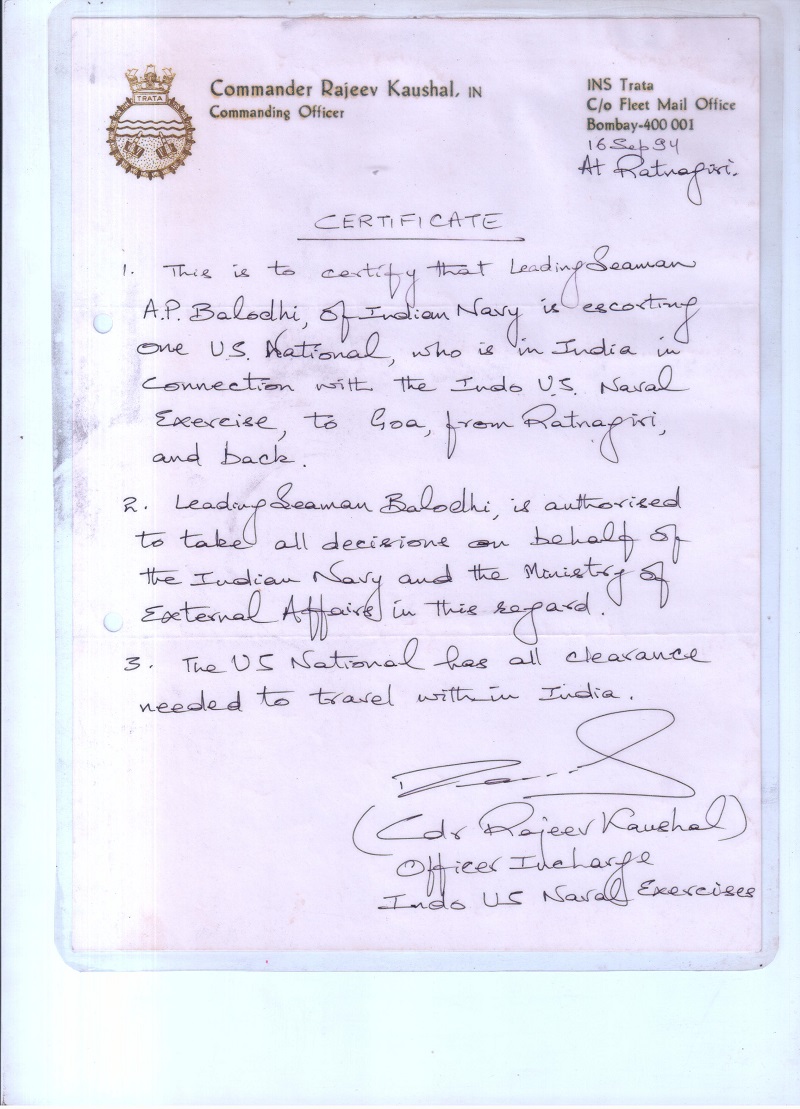 TRATA
Commander Rajeev Kaushal, IN
Commanding Officer
INS Trata
C/o Fleet Mail Office
Bombay-400 001
16 Sep 94
At Ratnagiri.
CERTIFICATE
1. This is to certify that Leading Seaman
A.P. Balodhi, of Indian Navy is escorting
one U.S. National, who is in India in
Connection with the Indo U.S. Naval
Exercise, to Goa, from Ratnagiri,
and back.
2. Leading Seaman Balodhi, is authorised
to take all decisions on behalf of
the Indian Navy and the Ministry of
External Affairs in this regard.
3. The US National has all clearance
needed to travel within India.
(Cdr Rajeev Kaushal)
Officer Incharge
Indo US Naval Exercises